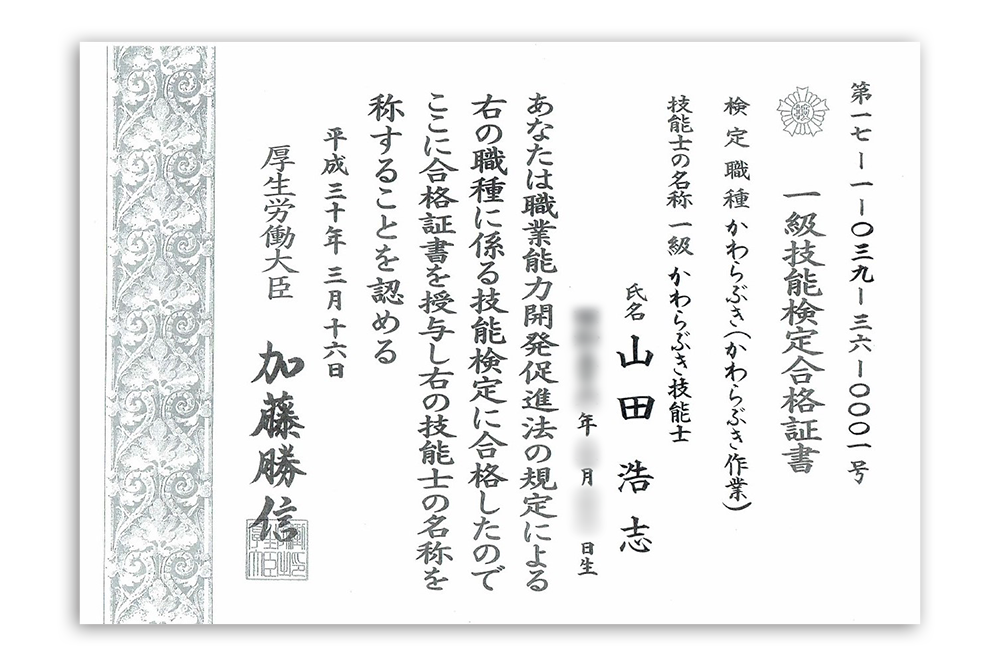 第一七ー一ー〇三九ー三六ー〇〇〇一号
一級技能検定合格証書
検定職種 かわらぶき(かわらぶき作業)
技能士の名称 一級 かわらぶき技能士
氏名 山田 浩志
年 月 日生
あなたは職業能力開発促進法の規定による
右の職種に係る技能検定に合格したので
ここに合格証書を授与し右の技能士の名称を
称することを認める
平成三十年 三月十六日
厚生労働大臣 加藤勝信